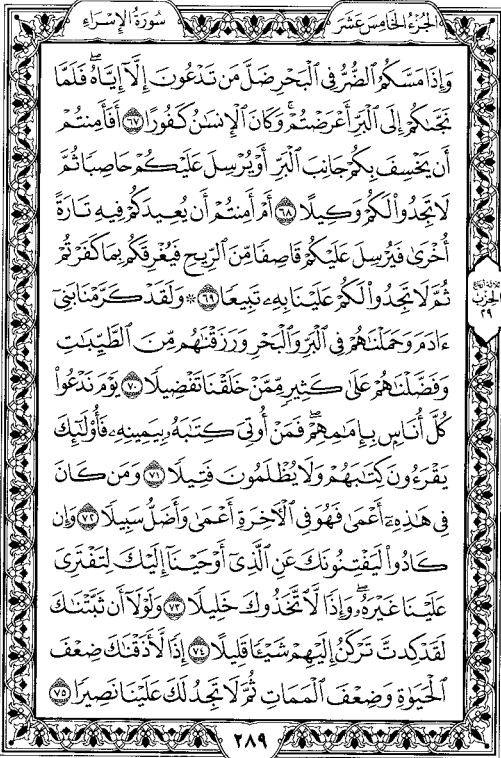 الجزء الخامس عشر
سورة الإسراء
وَإِذَا مَسَّكُمُ ٱلضُّرُّ فِى ٱلْبَحْرِ ضَلَّ مَن تَدْعُونَ إِلَّآ إِيَّاهُ ۖ فَلَمَّا
نَجَّىٰكُمْ إِلَى ٱلْبَرِّ أَعْرَضْتُمْ ۚ وَكَانَ ٱلْإِنسَـٰنُ كَفُورًا ٦٧ أَفَأَمِنتُمْ
أَن يَخْسِفَ بِكُمْ جَانِبَ ٱلْبَرِّ أَوْ يُرْسِلَ عَلَيْكُمْ حَاصِبًا ثُمَّ
لَا تَجِدُوا۟ لَكُمْ وَكِيلًا ٦٨ أَمْ أَمِنتُمْ أَن يُعِيدَكُمْ فِيهِ تَارَةً
أُخْرَىٰ فَيُرْسِلَ عَلَيْكُمْ قَاصِفًا مِّنَ ٱلرِّيحِ فَيُغْرِقَكُم بِمَا كَفَرْتُمْ
ثُمَّ لَا تَجِدُوا۟ لَكُمْ عَلَيْنَا بِهِۦ تَبِيعًا ٦٩ ۞ وَلَقَدْ كَرَّمْنَا بَنِىٓ
ءَادَمَ وَحَمَلْنَـٰهُمْ فِى ٱلْبَرِّ وَٱلْبَحْرِ وَرَزَقْنَـٰهُم مِّنَ ٱلطَّيِّبَـٰتِ
وَفَضَّلْنَـٰهُمْ عَلَىٰ كَثِيرٍ مِّمَّنْ خَلَقْنَا تَفْضِيلًا ٧٠ يَوْمَ نَدْعُوا۟
كُلَّ أُنَاسٍۭ بِإِمَـٰمِهِمْ ۖ فَمَنْ أُوتِىَ كِتَـٰبَهُۥ بِيَمِينِهِۦ فَأُو۟لَـٰٓئِكَ
يَقْرَءُونَ كِتَـٰبَهُمْ وَلَا يُظْلَمُونَ فَتِيلًا ٧١ وَمَن كَانَ
فِى هَـٰذِهِۦٓ أَعْمَىٰ فَهُوَ فِى ٱلْـَٔاخِرَةِ أَعْمَىٰ وَأَضَلُّ سَبِيلًا ٧٢ وَإِن
كَادُوا۟ لَيَفْتِنُونَكَ عَنِ ٱلَّذِىٓ أَوْحَيْنَآ إِلَيْكَ لِتَفْتَرِىَ
عَلَيْنَا غَيْرَهُۥ ۖ وَإِذًا لَّٱتَّخَذُوكَ خَلِيلًا ٧٣ وَلَوْلَآ أَن ثَبَّتْنَـٰكَ
لَقَدْ كِدتَّ تَرْكَنُ إِلَيْهِمْ شَيْـًٔا قَلِيلًا ٧٤ إِذًا لَّأَذَقْنَـٰكَ ضِعْفَ
ٱلْحَيَوٰةِ وَضِعْفَ ٱلْمَمَاتِ ثُمَّ لَا تَجِدُ لَكَ عَلَيْنَا نَصِيرًا ٧٥
ثلاثة أرباع
الحزب
٢٩
٢٨٩